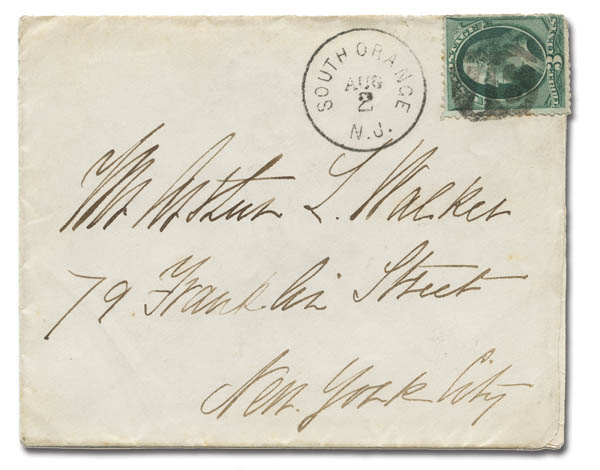 SOUTH ORANGE
AUG
2
N.J.
POSTAGE
THREE 3 CENTS
Mr. Arthur L. Walker
79. Franklin Street
New. York City